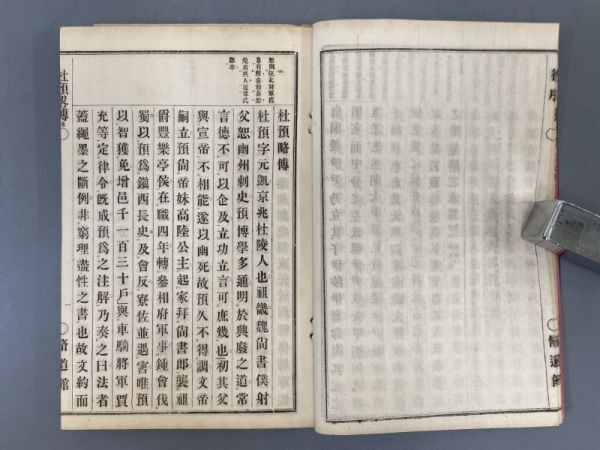 脩道館
杜預略傳
杜預字元凱京兆杜陵人也祖畿魏尚書僕射
父恕幽州刺史預博學多通明於興廢之道常
言德不可以企及立功立言可庶幾也初其父
與宣帝不相能遂以幽死故預久不得調文帝
嗣立預尚帝妹高陸公主起家拜尚書郎襲祖
爵豐樂亭侯在職四年轉參相府軍事鍾會伐
蜀以預爲鎭西長史及會反寮佐並遇害唯預
以智獲免增邑千一百三十戶與車騎將軍賈
充等定律令既成預爲之注解乃奏之曰法者
蓋繩墨之斷例非窮理盡性之書也故文約而
杜預略傳
脩道館